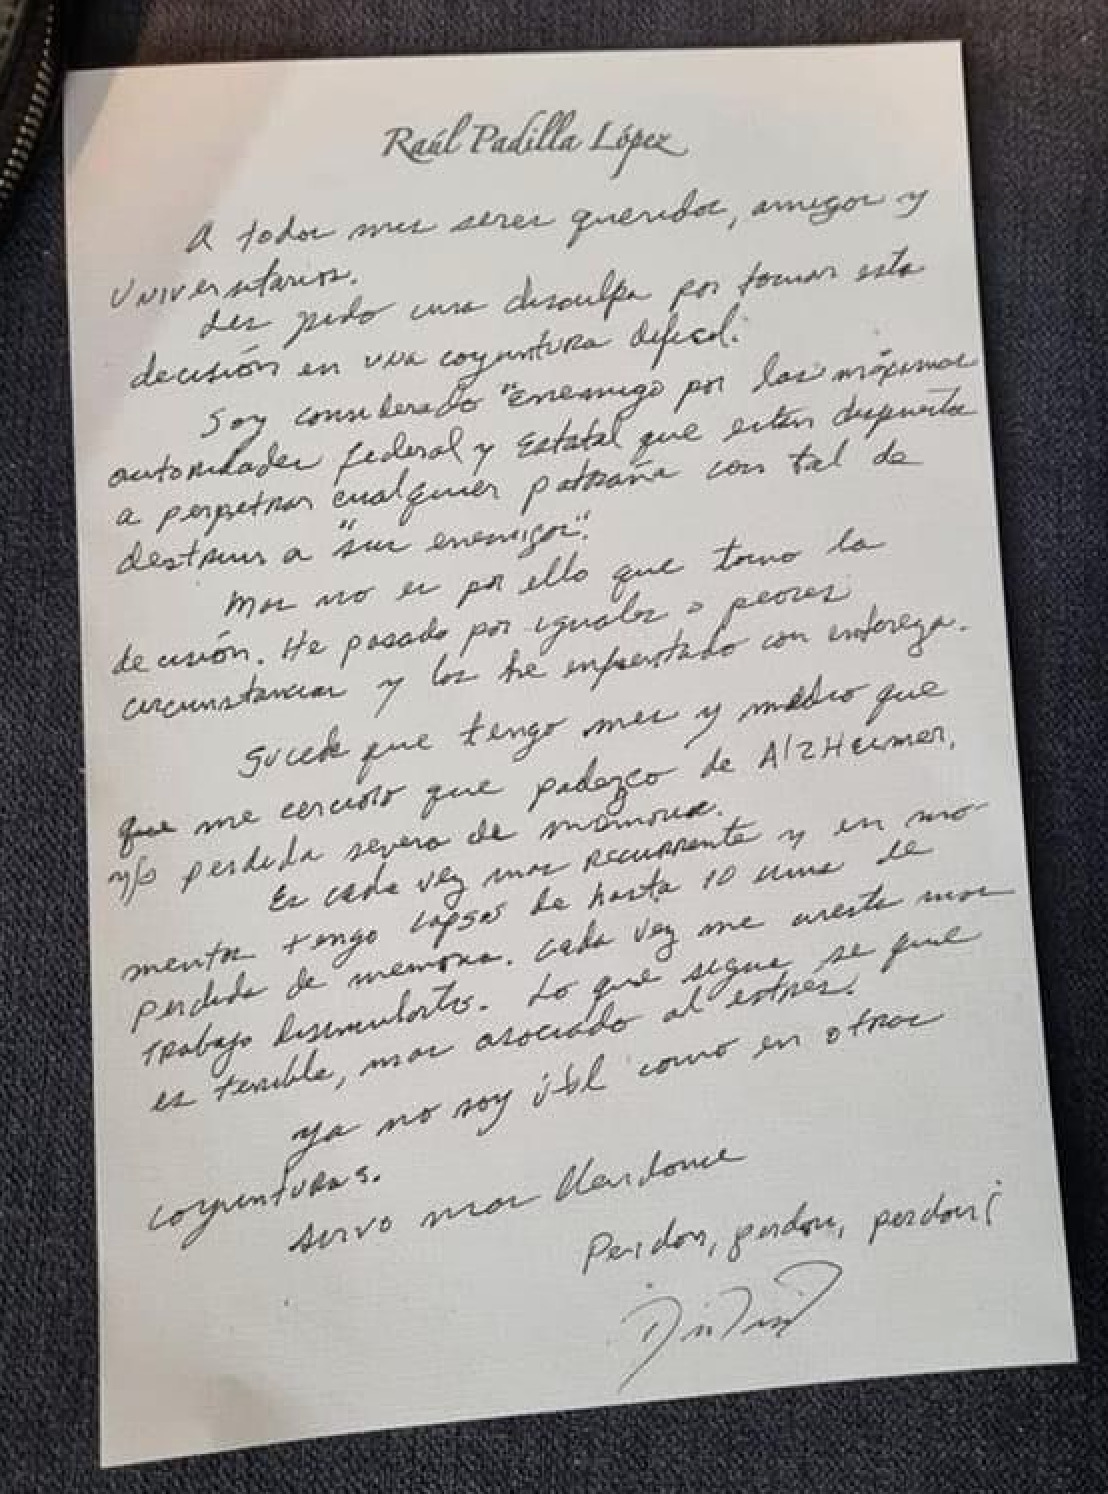 Raúl Padilla López
A todos mis seres queridos, amigos y
Universitarios.
Les pido una disculpa por tomar esta
decisión en una coyuntura difícil.
Soy considerado "Enemigo por las máximas
autoridades federal y Estatal que están dispuesta
a perpetrar cualquier patraña con tal de
destruir a "sus enemigos".
Mas no es por ello que tomo la
decisión. He pasado por iguales o peores
circunstancias y los he enfrentado con entereza.
Sucede que tengo mes y medio que
que me cercioro que padezco de AlzHeimer,
y/o perdida severa de memoria.
Es cada vez mas recurrente y en mo
mentos tengo lapsos de hasta 10 mins de
perdida de memoria. Cada vez me cuesta mas
trabajo disimularlos. Lo que sigue se que
es terrible, mas asociado al estrés.
Ya no soy útil como en otras
coyunturas.
sirvo mas
Perdon, perdon, perdon¡